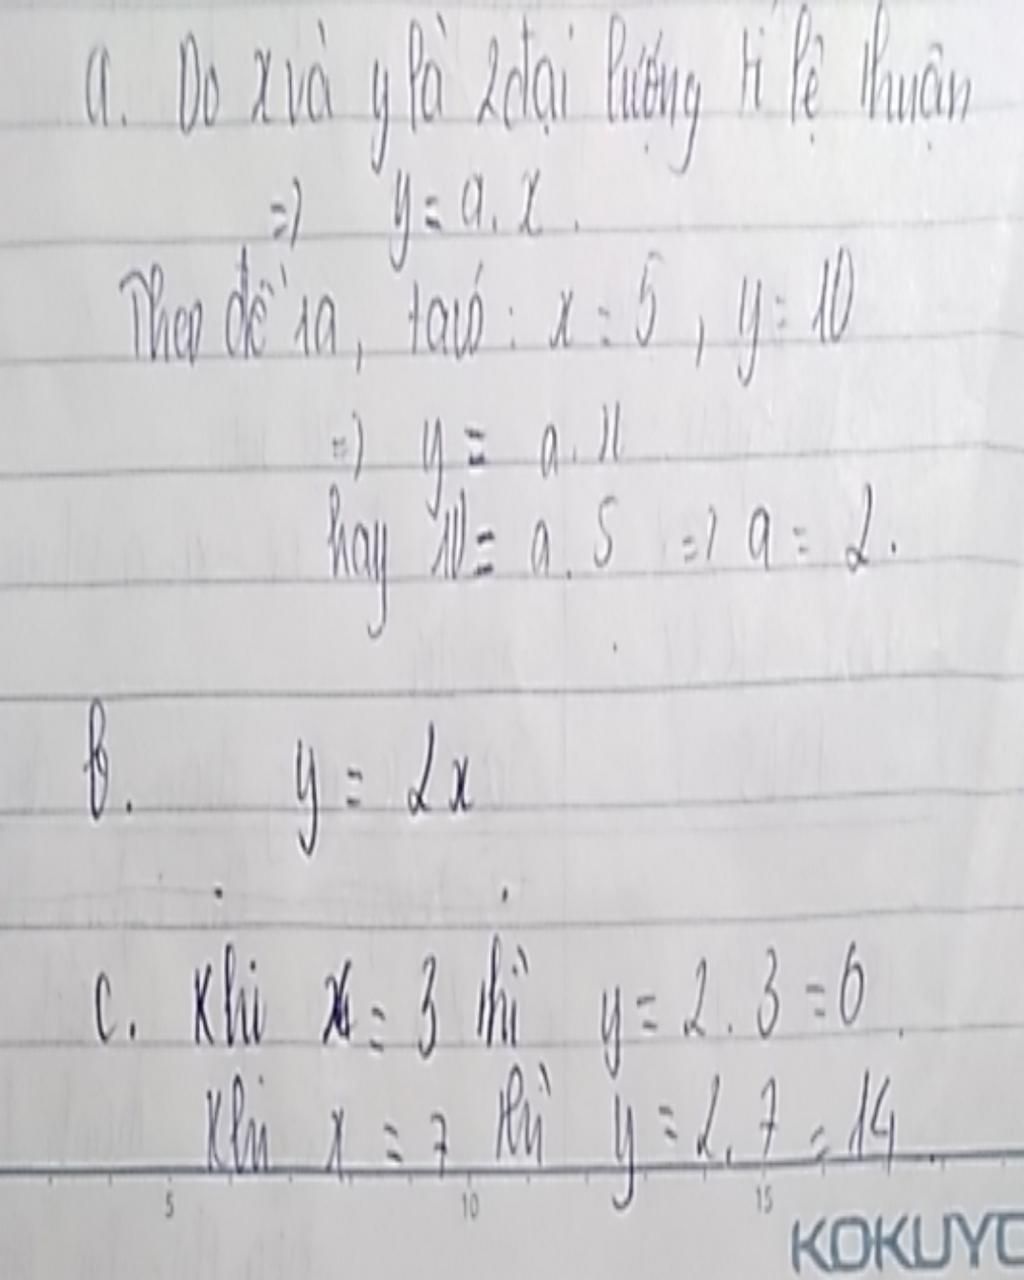 a. Do x và y là 2 đại lượng tỉ lệ thuận
=> y = a. x.
Theo đề ra, ta có: x = 5, y = 10
=> y = a. x
hay 10 = a. 5 => a = 2.
b. y = 2x
c. Khi x = 3 thì y = 2. 3 = 6.
Khi x = 7 thì y = 2. 7 = 14.
5 10 15
KOKUYO